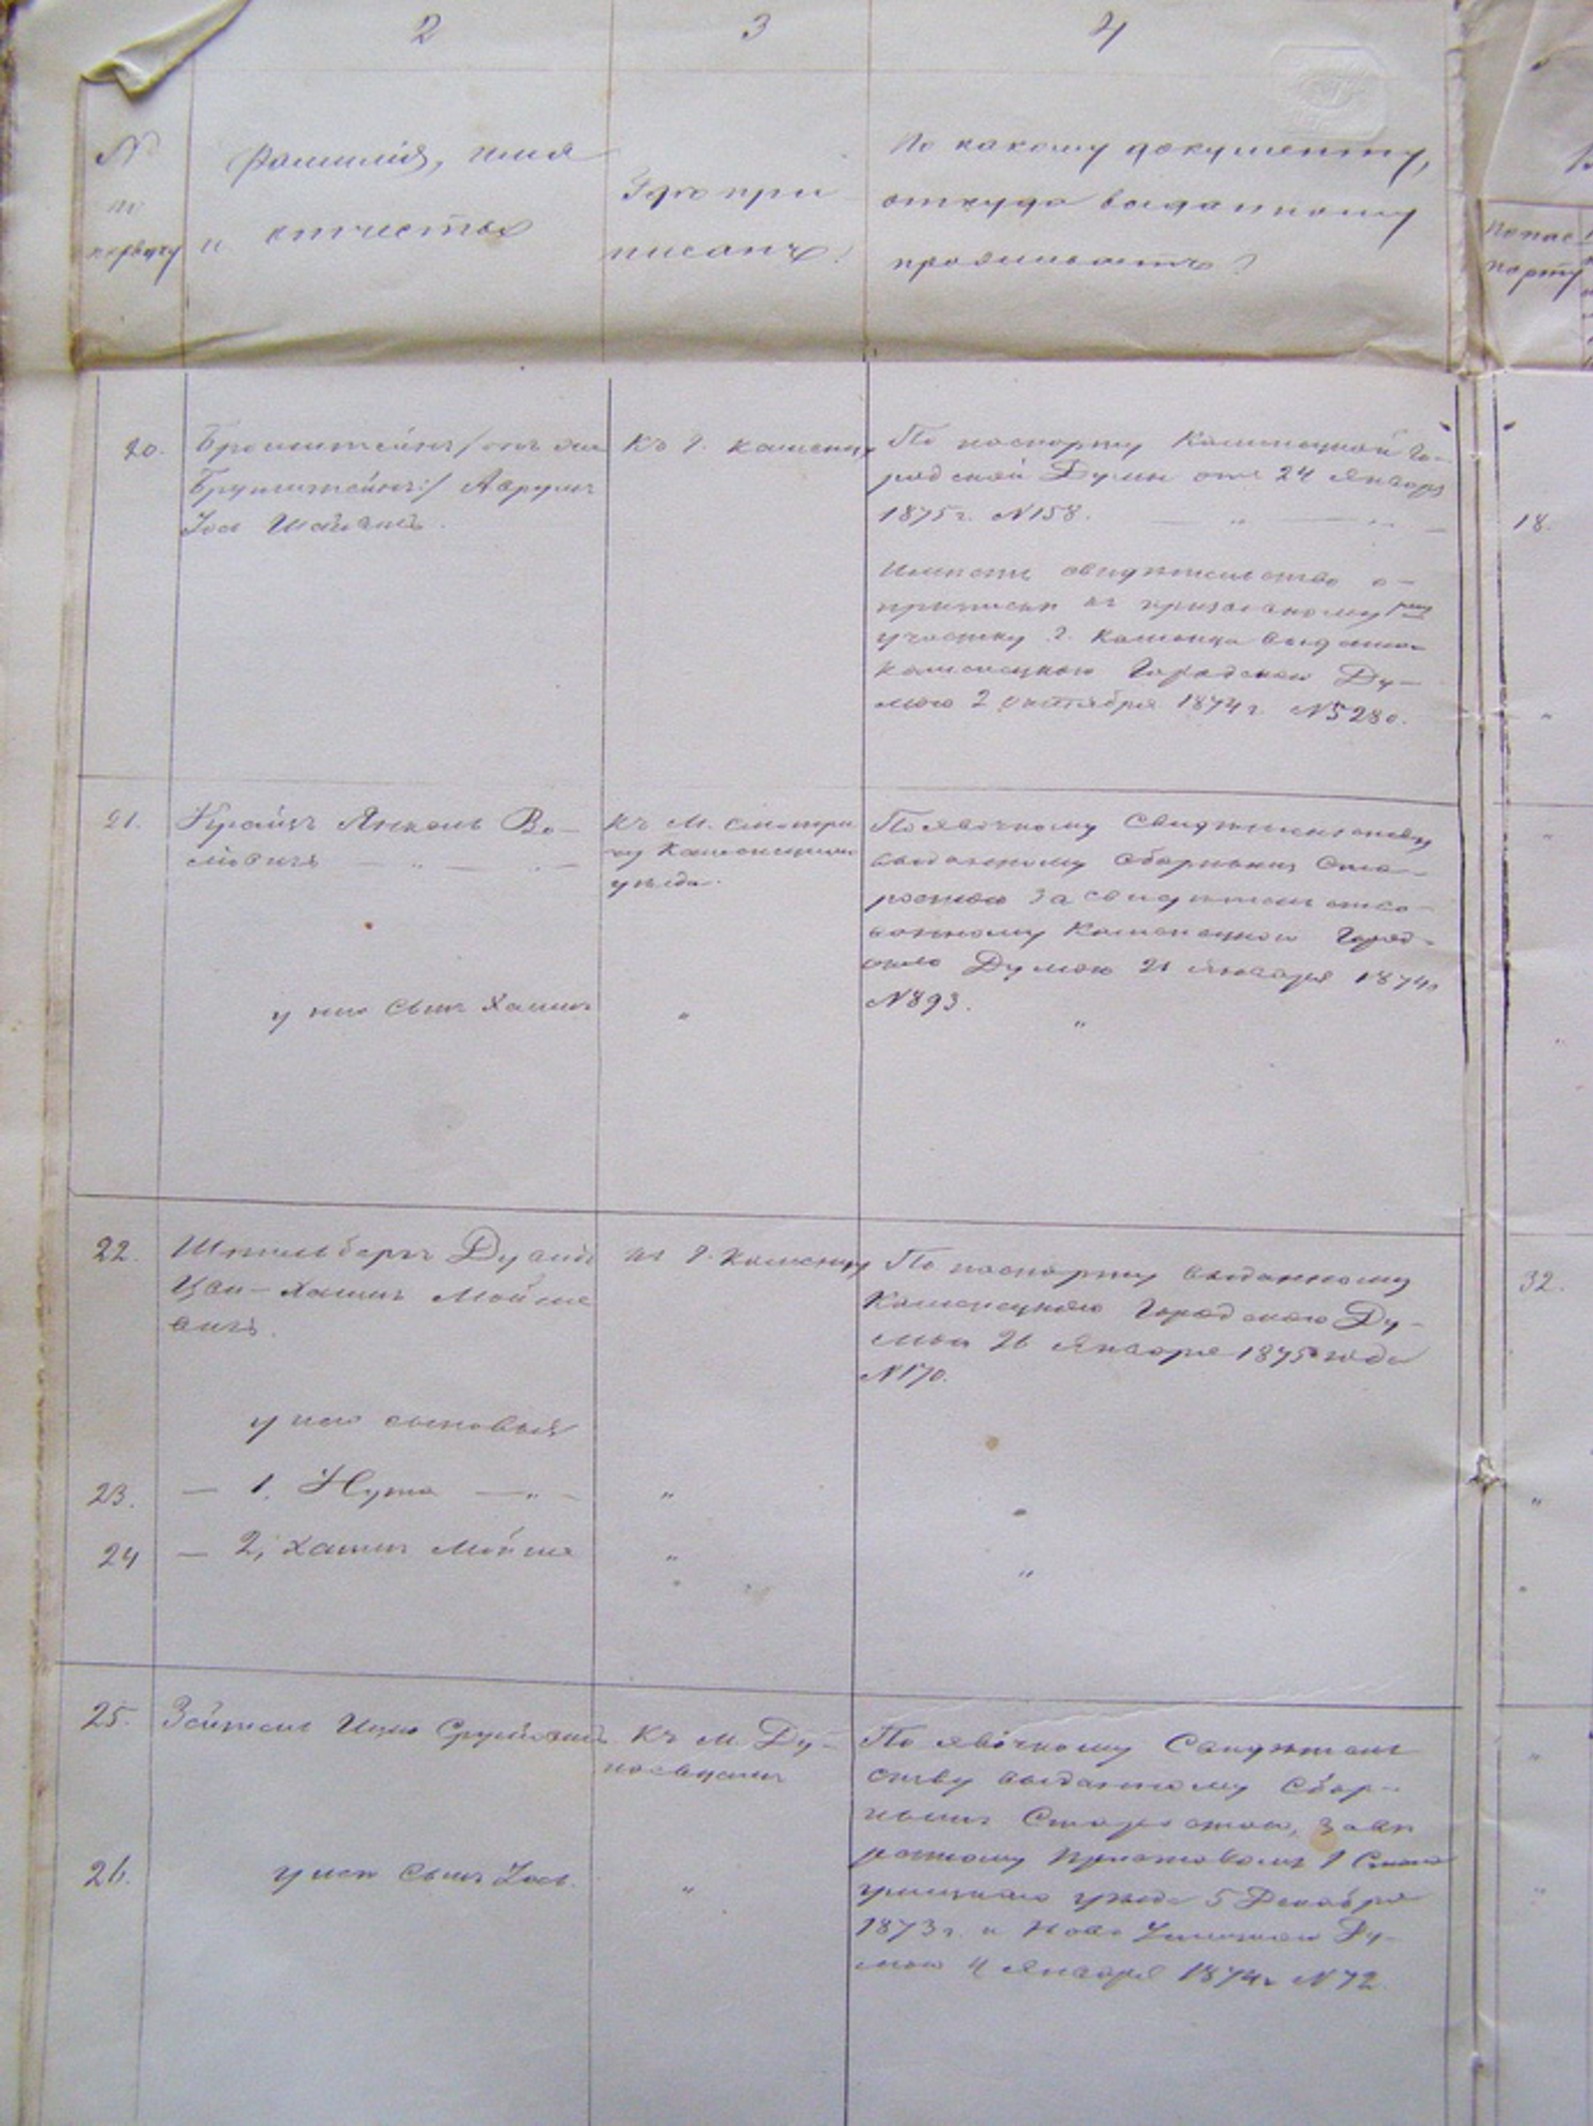 2
3
4
№
по
порядку
Фамилія, имя
и отчество
Гдѣ при
писанъ?
По какому документу,
откуда выданному
проживаетъ?
По пас
порту
20.
Бронштейнъ /: онъ же
Брунштейнъ :/ Аврумъ
Іосъ
Къ г. Каменцу
По паспорту Каменецкой Го-
родской Думы отъ 24 Января
1875 г. №158.
18.
Имѣетъ свидѣтельство о
припискѣ къ призывному
участку г. Каменца выданное
Каменецкою Городскою Ду-
мою 2 Октября 1874 г. №5280.
21.
Крайзъ Янкель Во-
Къ М. Смотри
чу Каменецкаго
уѣзда.
По явочному Свидѣтельству
выданному Сборнымъ Ста-
ростою засвидѣтельство-
ванному Каменецкою Город-
скою Думою 21 Января 1874
№893.
у него сынъ Хаимъ
"
"
22.
Дувидъ
Хаимъ Мойше
вичъ.
къ г. Каменцу
По паспорту выданному
Каменецкою Городскою Ду-
мою 26 Января 1875 года
№170.
32.
у него сыновья
23.
— 1. Нута — " —
"
"
24
— 2, Хаимъ Мойше
"
"
25.
Зейтель Ицко Срулевичъ
Къ М. Ду-
наевцамъ
По явочному Свидѣтель
ству выданному Сбор-
нымъ Старостою, завѣ
ренному Приставомъ 1 Стана
уѣзда 5 Декабря
1873 г. и Ново Ушицкою Ду-
мою 4 Января 1874 г. №72.
26.
у него сынъ Іосъ.
"